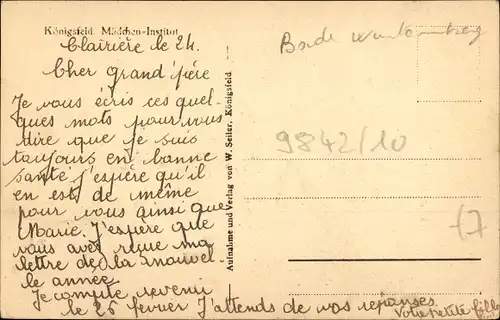 Königsfeld. Mädchen-Institut.
Clairière le 24.
Cher grand'père
Je vous écris ces quel-
ques mots pour vous
dire que je suis
toujours en bonne
santé j'espère qu'il
en est de même
pour vous ainsi que
Marie. J'espère que
vous avez reçue ma
lettre de la nouvel-
le année.
Je compte revenir
le 26 février J'attends de vos réponses.
Votre petite fille
Aufnahme und Verlag von W. Seiler, Königsfeld
9842/10
17